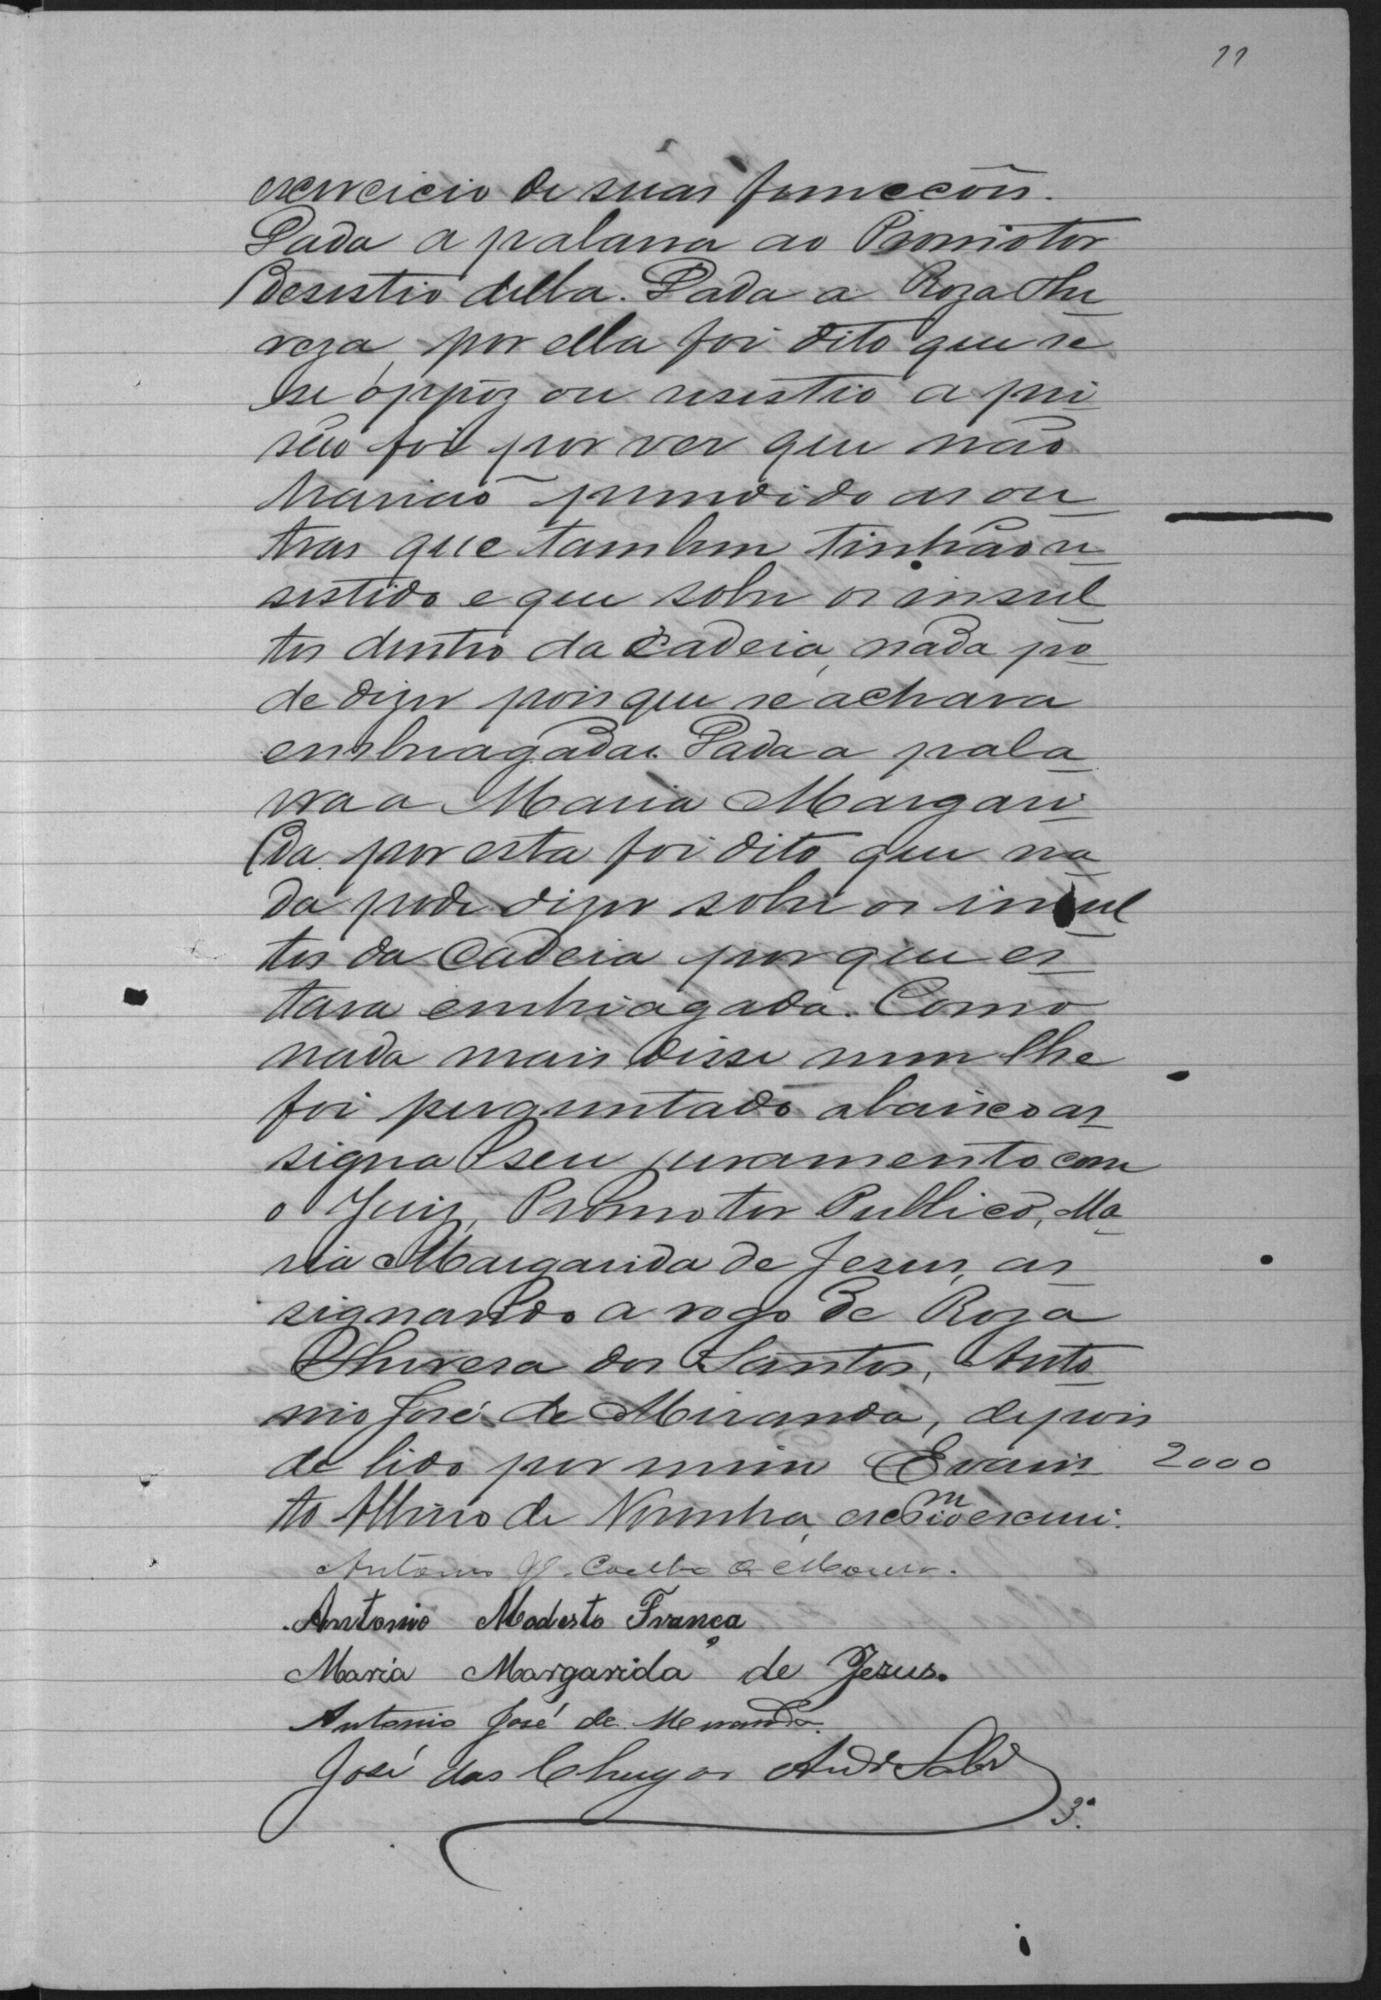 11
exercicio de suas funcções.
Dada a palavra ao Promotor
desistio della. Dada a Roza The
reza, por ella foi dito que se
se oppoz ou resistio a pri
são foi por ver que não
havião prendido as ou
tras que tambem tinhão re
sistido e que sobre os insul
tos dentro da cadeia, nada po
de dizer pois que se achava
embriagada. Dada a pala
vra a Maria Margari
da por esta foi dito que na
da pode dizer sobre os insul
tos da cadeia por que es
tava embriagada. Como
nada mais disse nem lhe
foi perguntado abaixo as
signa seu juramento com
o Juiz, Promotor Publico, Ma
ria Margarida de Jesus, as
signando a rogo de Roza
Thereza dos Santos, Anto
nio José de Miranda, depois
de lido por mim Evaris 2000
to Albino de Noronha, escm io escrevi.
Antonio Coelho de Moura.
Antonio Modesto França
Maria Margarida de Jezus.
Antonio José de Miranda.
José das Chagas
3ª